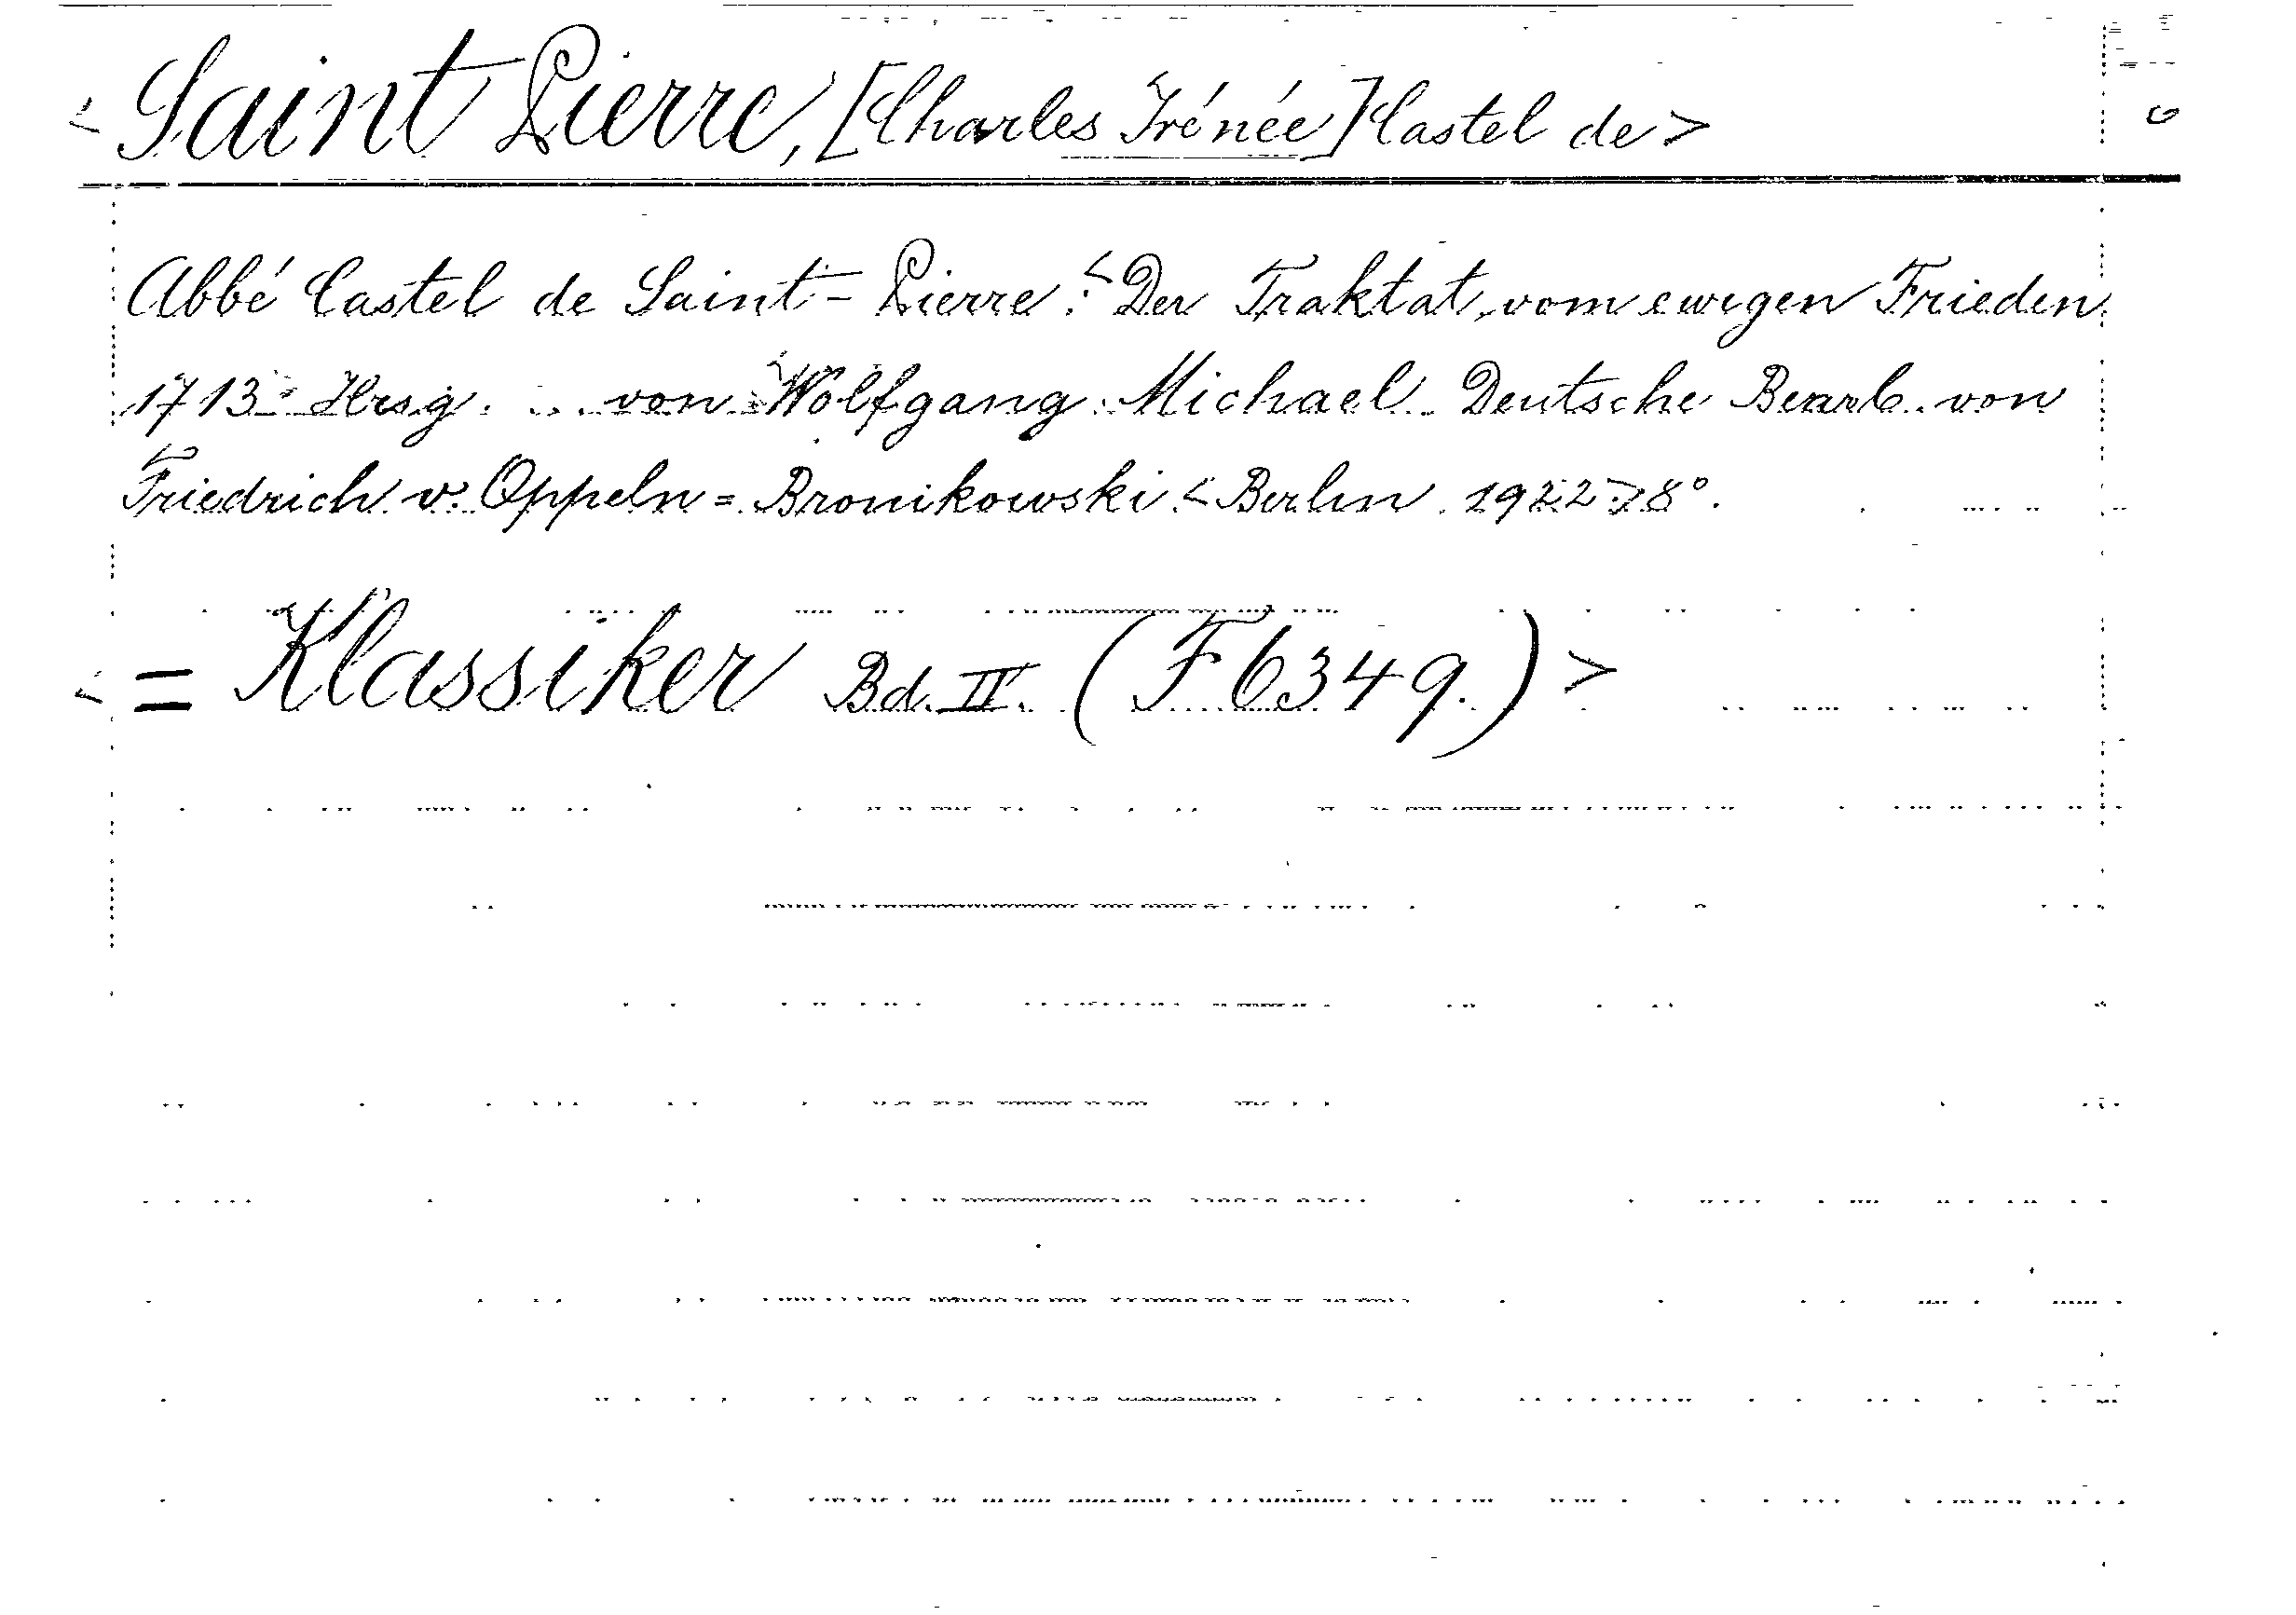 < Saint Pierre, [Charles Irénée] Castel de >
Abbé Castel de Saint-Pierre: < Der Traktat vom ewigen Frieden
1713. Hrsg. ... von Wolfgang Michael. Deutsche Bearb. von
Friedrich v. Oppeln=Bronikowski. < Berlin 1922 > 8°.
< = Klassiker Bd. II. (F 6349.) >